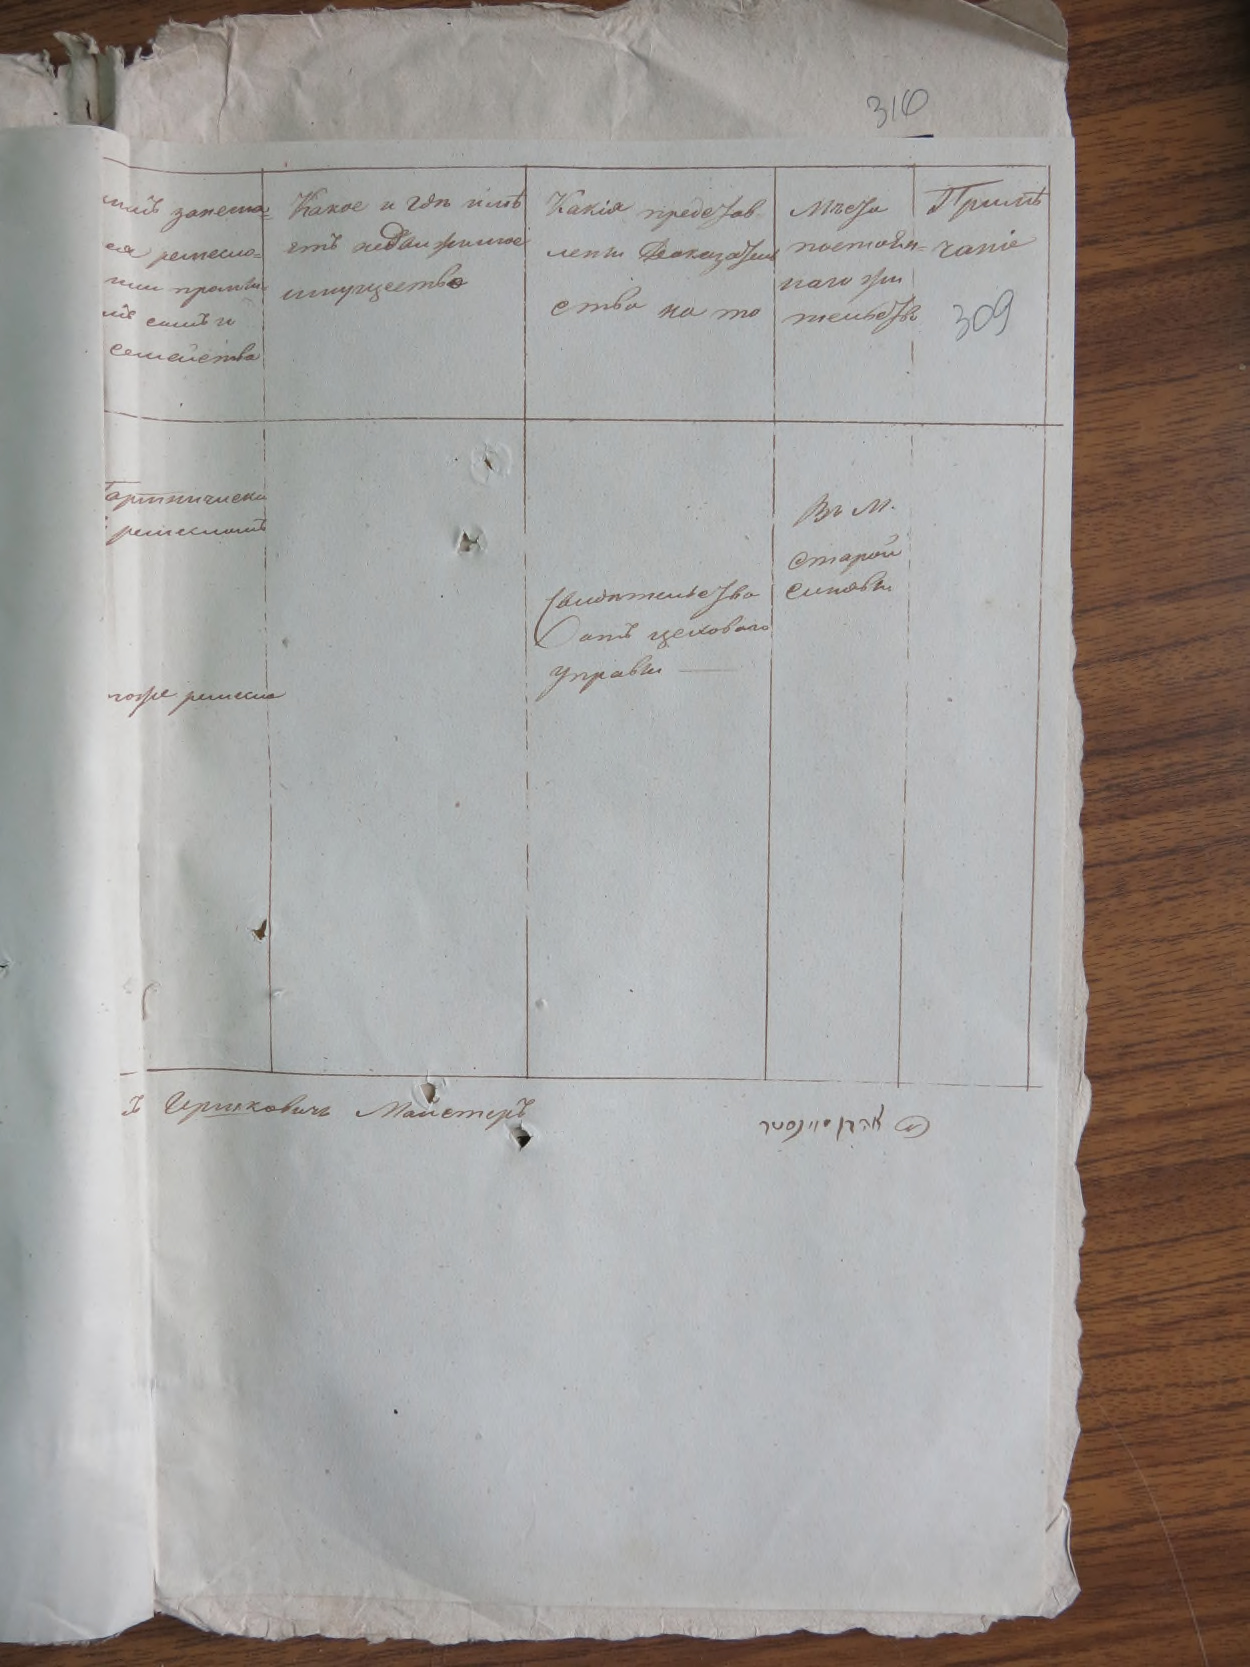 310
занема=
ремесло=
семейства
Какое и гдѣ имѣ
етъ недвижимое
имущество
Какія представ
лены Доказатель
ства на то
Мѣсто
постоян=
наго жи
тельства
Примѣ
чаніе
309
ремесломъ
тоже ремесло
Свидѣтельство
отъ цеховаго
управы —
Въ М.
старой
синявки
Ицковичъ Майстеръ